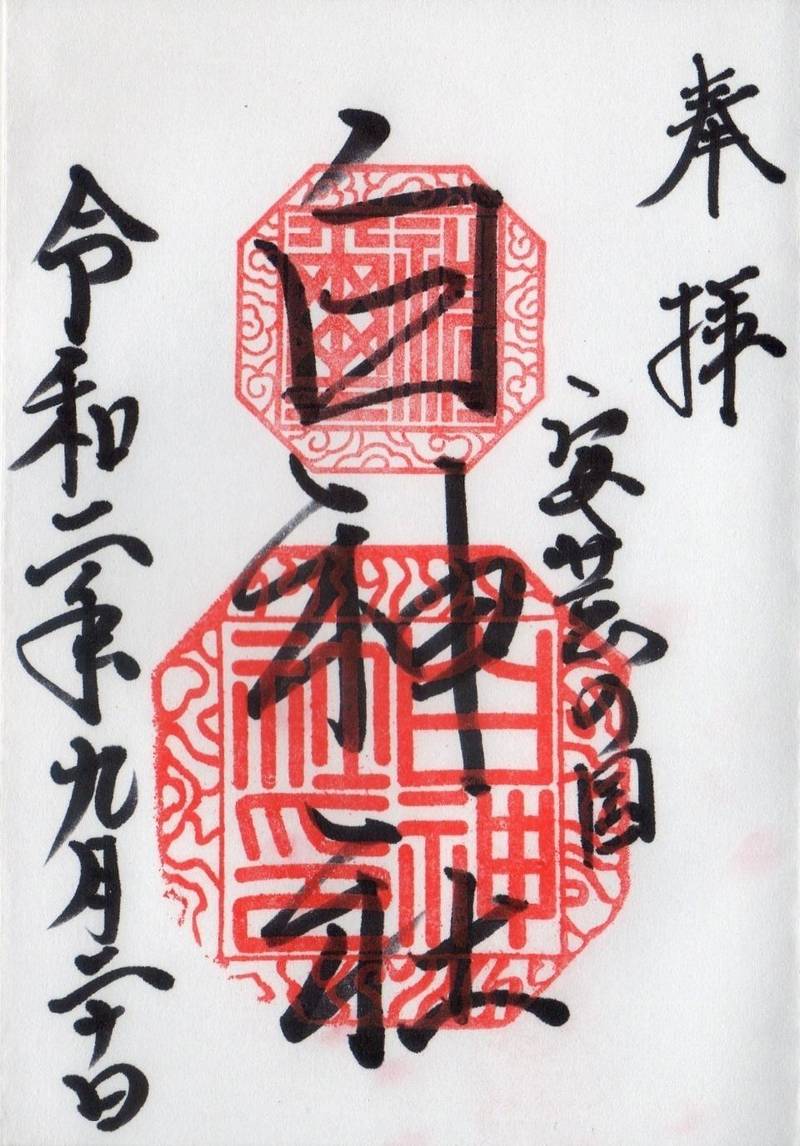 奉拝
安芸の国
白神社
白神社印
令和二年九月二十日